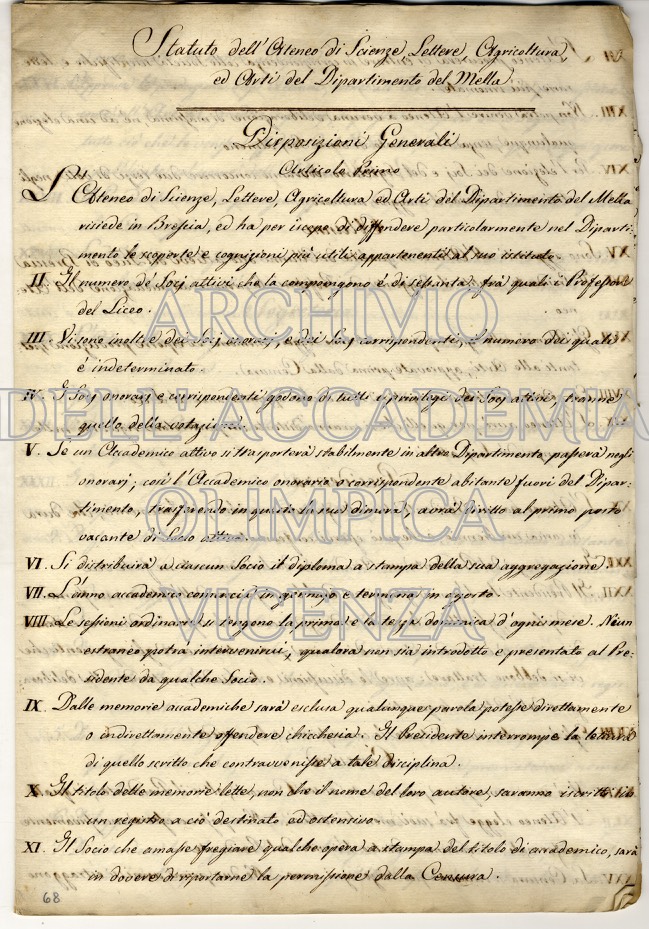 Statuto dell'Ateneo di Scienze, Lettere, Agricoltura,
ed Arti del Dipartimento del Mella
Disposizioni Generali
Articolo Primo
L'Ateneo di Scienze, Lettere, Agricoltura ed Arti del Dipartimento del Mella
risiede in Brescia, ed ha per iscopo di diffondere particolarmente nel Diparti-
mento le scoperte e cognizioni più utili appartenenti al suo istituto.
II. Il numero de' Socj attivi che lo compongono è di sessanta frà quali i Professori
del Liceo.
III. Vi sono inoltre dei Socj onorarj, e dei Socj corrispondenti, il numero dei quali
è indeterminato.
IV. I Socj onorarj e corrispondenti godono di tutti i privilegi dei Socj attivi, tranne
quello della votazione.
V. Se un Accademico attivo si trasporterà stabilmente in altro Dipartimento passerà negli
onorarj; così l'Accademico onorario o corrispondente abitante fuori del Dipar-
timento, trasferendo in questo la sua dimora, avrà diritto al primo posto
vacante di Socio attivo.
VI. Si distribuirà a ciascun Socio il diploma a stampa della sua aggregazione.
VII. L'anno accademico comincia in gennajo e termina in agosto.
VIIII. Le sessioni ordinarie si tengono la prima e la terza domenica d'ogni mese. Niun
estraneo potrà intervenirvi, qualora non sia introdotto e presentato al Pre-
sidente da qualche Socio.
IX. Dalle memorie accademiche sarà esclusa qualunque parola potesse direttamente
o indirettamente offendere chicchesia. Il Presidente interrompe la lettura
di quello scritto che contravvenisse a tale disciplina.
X. Il titolo delle memorie lette, non che il nome del loro autore, saranno iscritti in
un registro a ciò destinato ed ostensivo.
XI. Il Socio che amasse fregiare qualche opera a stampa del titolo di accademico, sarà
in dovere di riportarne la permissione dalla Censura.
68
ARCHIVIO
DELL'ACCADEMIA
OLIMPICA
VICENZA